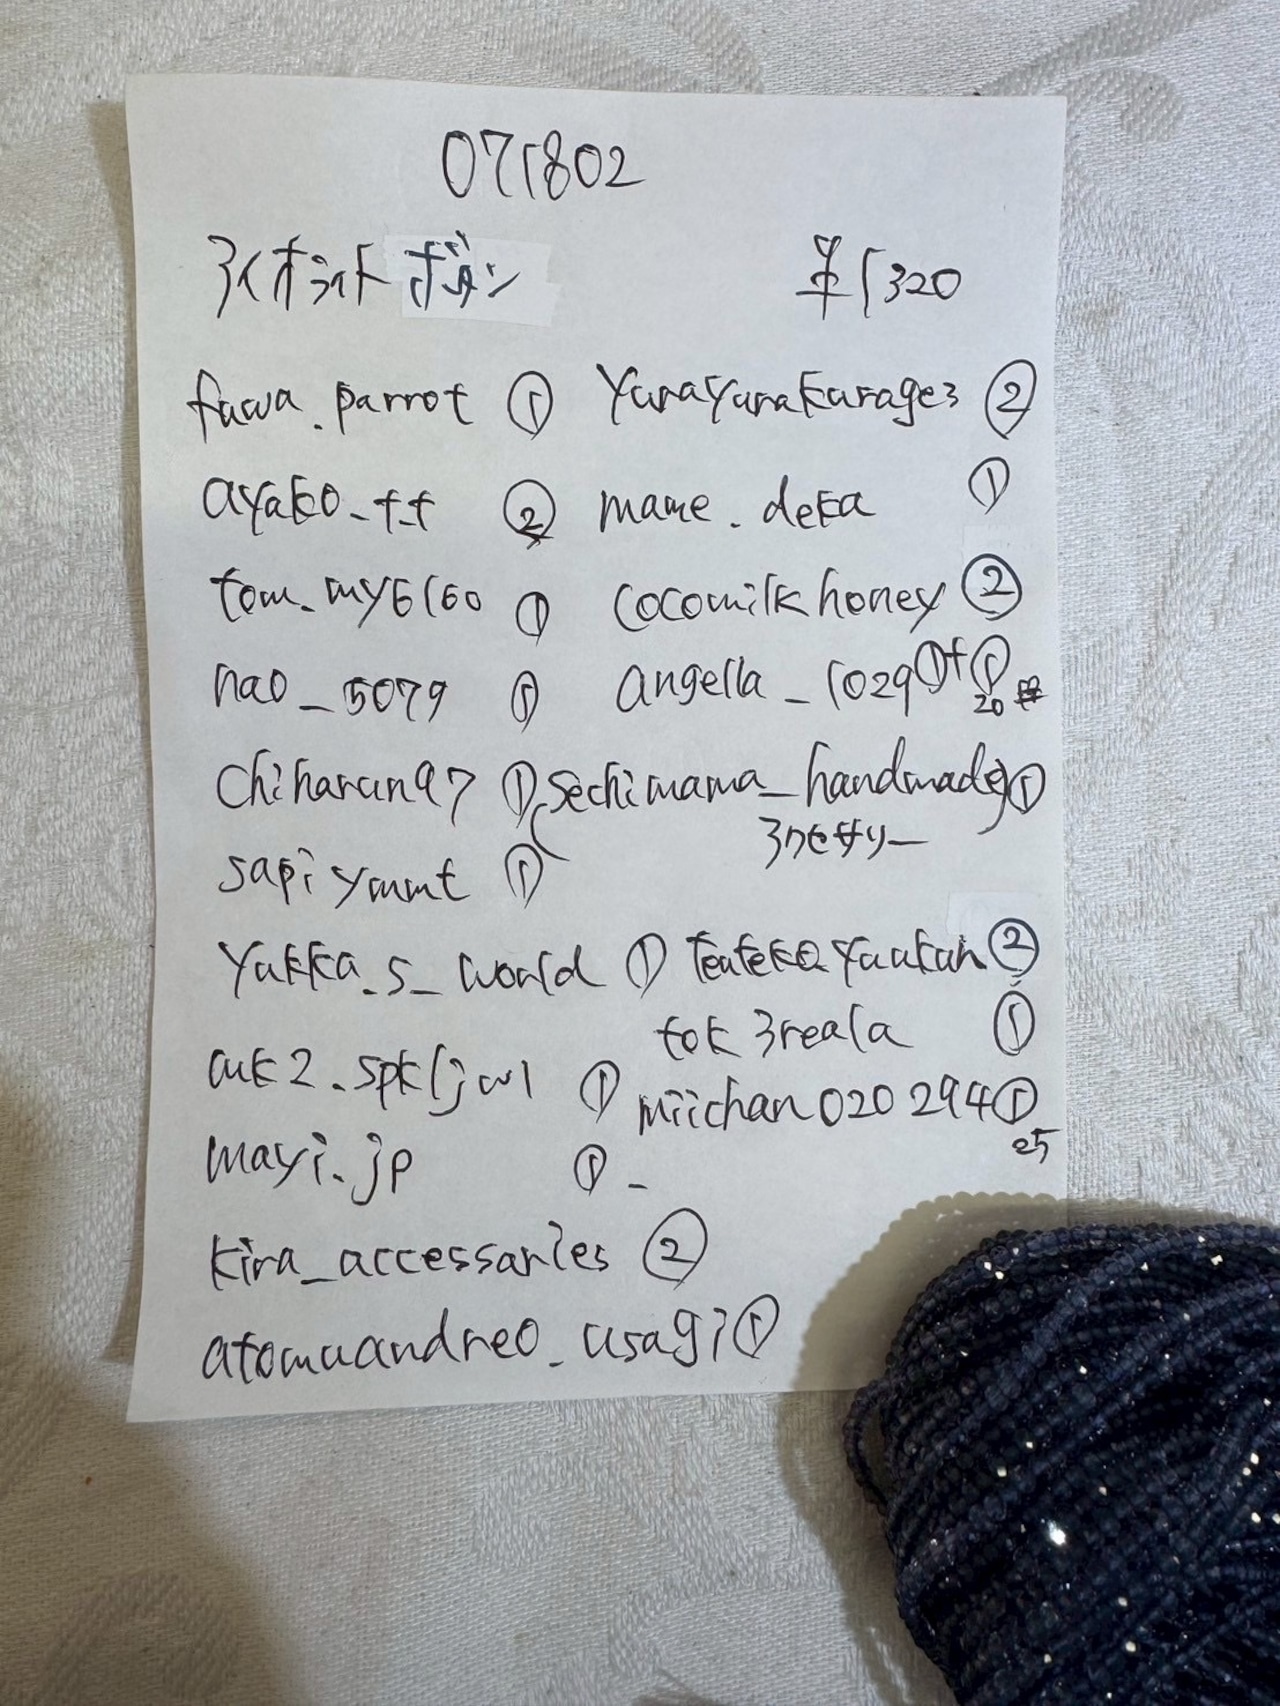 071802
アイオライト ボタン ¥1320
fuwa.parrot ① yurayurakurage3 ②
ayako_t.t ② mame.deka ①
tom.my6160 ① cocomilkhoney ②
nao_5079 ① angella_1029 ①+①
20
chiharun97 ① sechimama_handmade ①
アクセサリー
sapiymmt ①
yukka.s_world ① ②
tok3reala ①
mk2.spkljwl ① miichan020294 ①
25
mayi.jp ①
kira_accessaries ②
atomuandreo_usagi ①